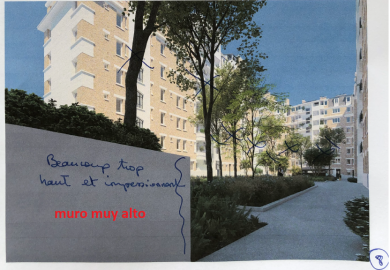 Beaucoup trop
haut et impressionnant
muro muy alto
8